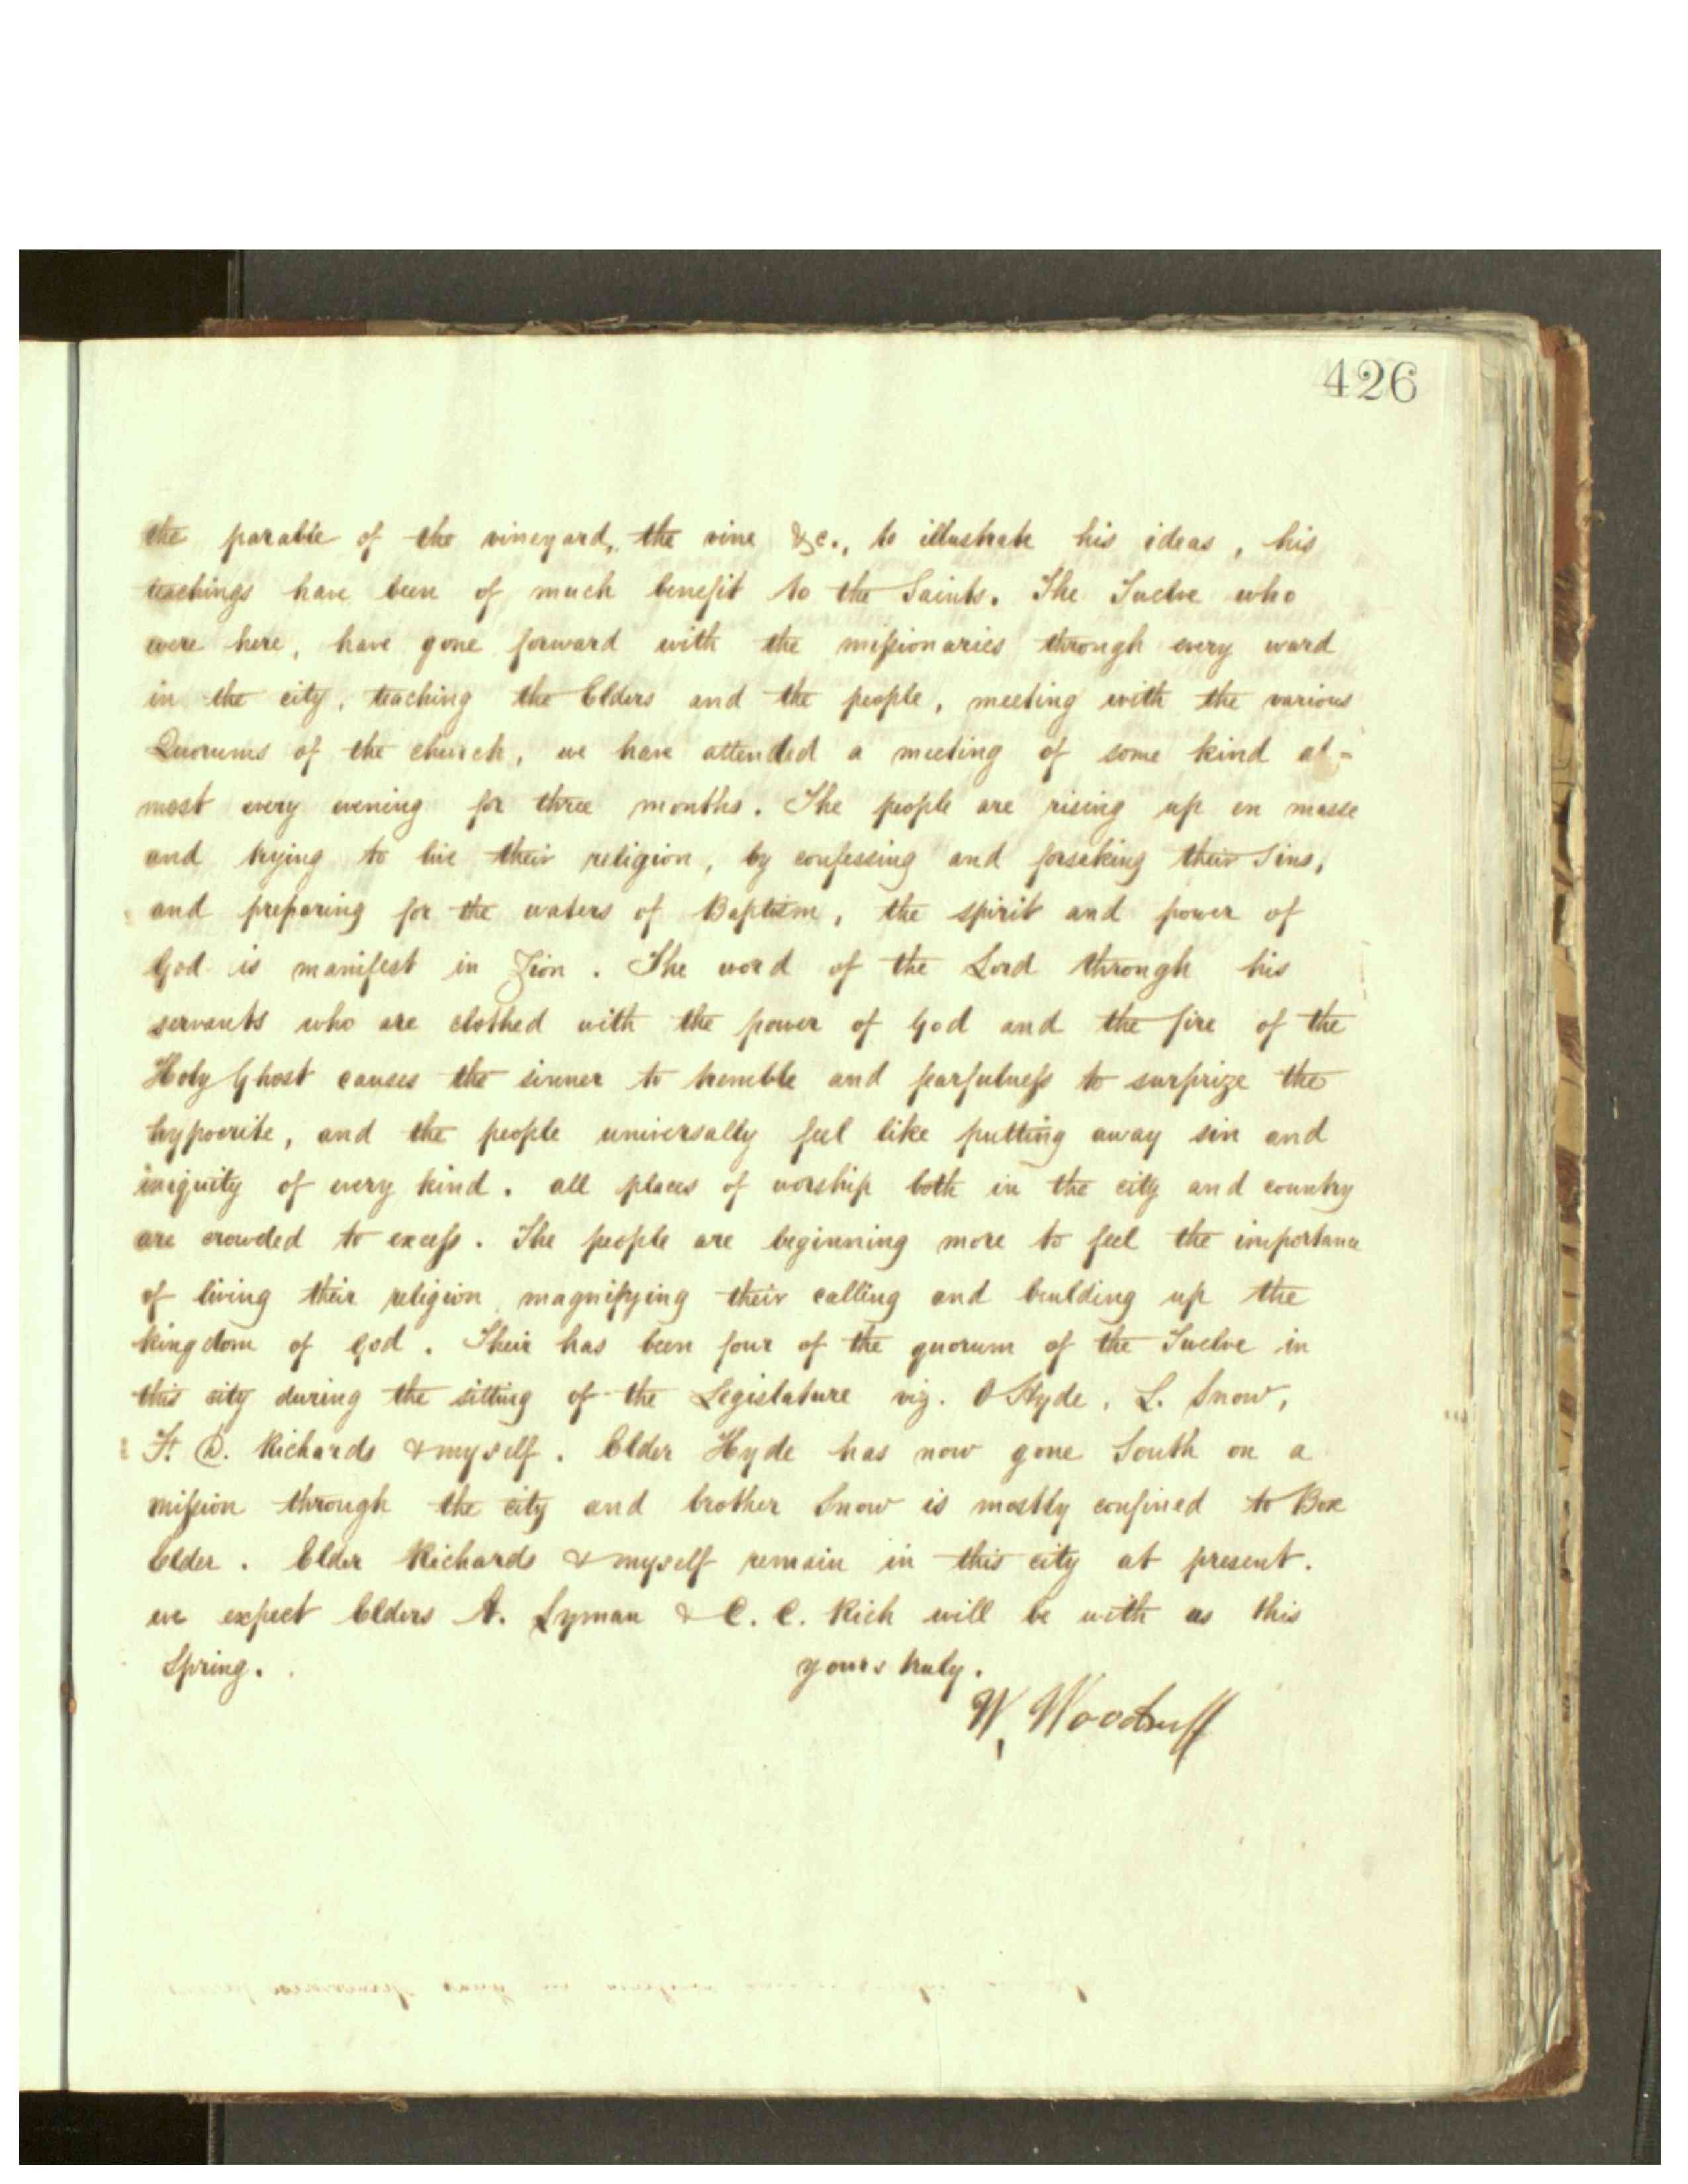 426
the parable of the vineyard, the vine &c., to illustrate his ideas, his
teachings have been of much benefit to the Saints. The Twelve who
were here, have gone forward with the missionaries through every ward
in the city, teaching the Elders and the people, meeting with the various
Quorums of the church, we have attended a meeting of some kind al-
most every evening for three months. The people are rising up en masse
and trying to live their religion, by confessing and forsaking their Sins,
and preparing for the waters of Baptism, the spirit and power of
God is manifest in Zion. The word of the Lord through his
servants who are clothed with the power of God and the fire of the
Holy Ghost causes the sinner to tremble and fearfulness to surprize the
hypocrite, and the people universally feel like putting away sin and
iniquity of every kind. all places of worship both in the city and country
are crowded to excess. The people are beginning more to feel the importance
of living their religion, magnifying their calling and building up the
kingdom of God. Their has been four of the quorum of the Twelve in
this city during the sitting of the Legislature viz. O Hyde, L. Snow,
F. D. Richards & myself. Elder Hyde has now gone South on a
mission through the city and brother Snow is mostly confined to Box
Elder. Elder Richards & myself remain in this city at present.
we expect Elders A. Lyman & C. C. Rich will be with us this
Spring. yours truly.
W. Woodruff